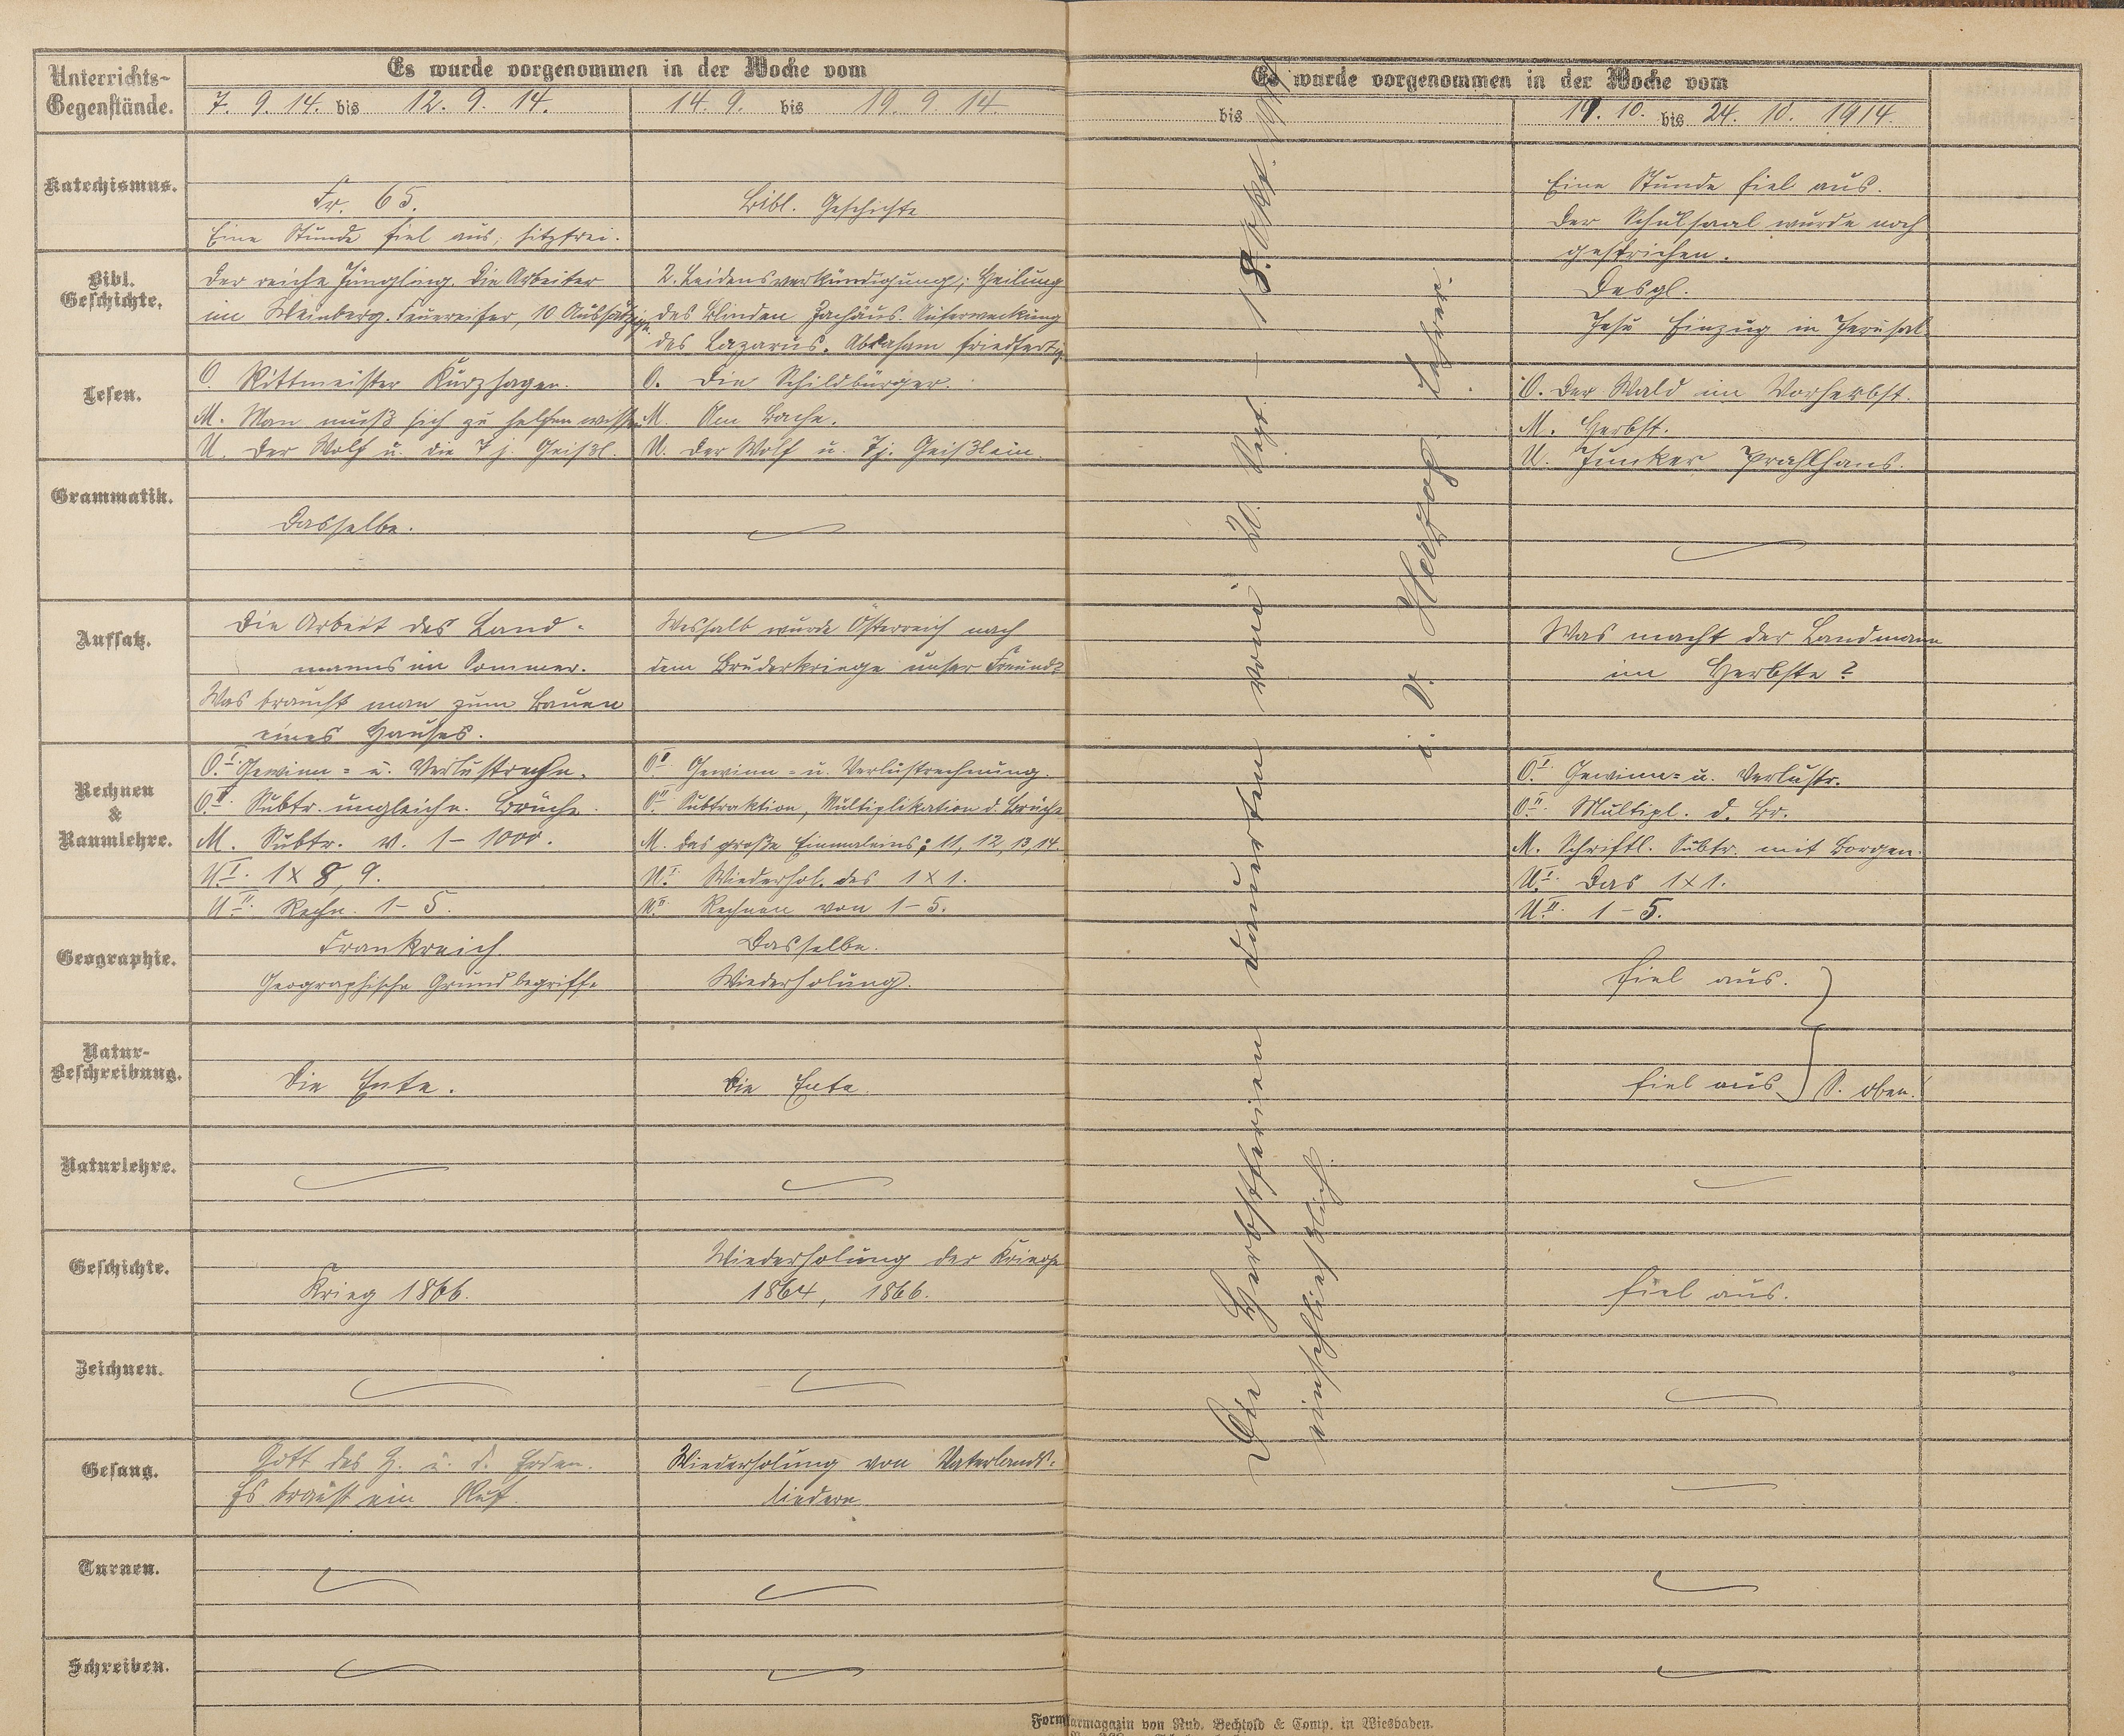 Unterrichts-
Gegenstände.
Es wurde vorgenommen in der Woche vom
7. 9. 14. bis 12. 9. 14.
14. 9. bis 19. 9. 14.
Es wurde vorgenommen in der Woche vom
bis
19. 10. bis 24. 10. 1914.
Katechismus.
Fr. 65.
Eine Stunde fiel aus, hitzfrei.
Bibl. Geschichte
Eine Stunde fiel aus.
Der Schulsaal wurde noch
gestrichen.
Bibl.
Geschichte.
Der reiche Jüngling. Die Arbeiter
im Weinberg. Feuereifer, 10 Aussätzige.
2. Leidensverkündigung; Heilung
des Blinden Zachäus. Auferweckung
des Lazarus. Abraham friedfertig
Desgl.
Jesu Einzug in Jerusal.
Lesen.
O. Rittmeister Kurzhagen.
M. Man muß sich zu helfen wissen
U. Der Wolf u. die 7 j. Geißl.
O. Die Schildbürger.
M. Am Bache.
U. Der Wolf u. 7 j. Geißlein.
O. Der Wald im Vorherbst.
M. Herbst.
U. Junker Prahlhans.
Grammatik.
Dasselbe.
Aufsatz.
Die Arbeit des Land-
manns im Sommer.
Was braucht man zum Bauen
eines Hauses.
Weshalb wurde Österreich nach
dem Bruderkriege unser Freund?
Was macht der Landmann
im Herbste?
Rechnen
&
Raumlehre.
O.I. Gewinn- u. Verlustrechn.
O.II. Subtr. ungleichn. Brüche.
M. Subtr. v. 1-1000.
U.I. 1x8, 9.
U.II. Rechn. 1-5.
O.I Gewinn- u. Verlustrechnung.
O.II Subtraktion, Multiplikation d. Brüche
M. Das große Einmaleins; 11, 12, 13, 14.
U.I Wiederhol. des 1x1.
U.II Rechnen von 1-5.
O.I. Gewinn- u. Verlustr.
O.II. Multipl. d. Br.
M. Schriftl. Subtr. mit Borgen.
U.I. Das 1x1.
U.II. 1-5.
Geographie.
Frankreich.
Geographische Grundbegriffe
Dasselbe.
Wiederholung.
fiel aus.
Natur-
Beschreibung.
Die Ente.
Die Ente.
fiel aus S. oben!
Naturlehre.
Geschichte.
Krieg 1866.
Wiederholung der Kriege
1864, 1866.
fiel aus.
Zeichnen.
Gesang.
Gott des H. u. d. Erden.
Es braust ein Ruf.
Wiederholung von Vaterlands-
liedern
Turnen.
Schreiben.
Die Herbstferien dauerten vom 20. Sept. – 18. Okt.
einschließlich.
i. V. Herzog. Lehrer.
Formularmagazin von Rud. Bechtold & Comp. in Wiesbaden.